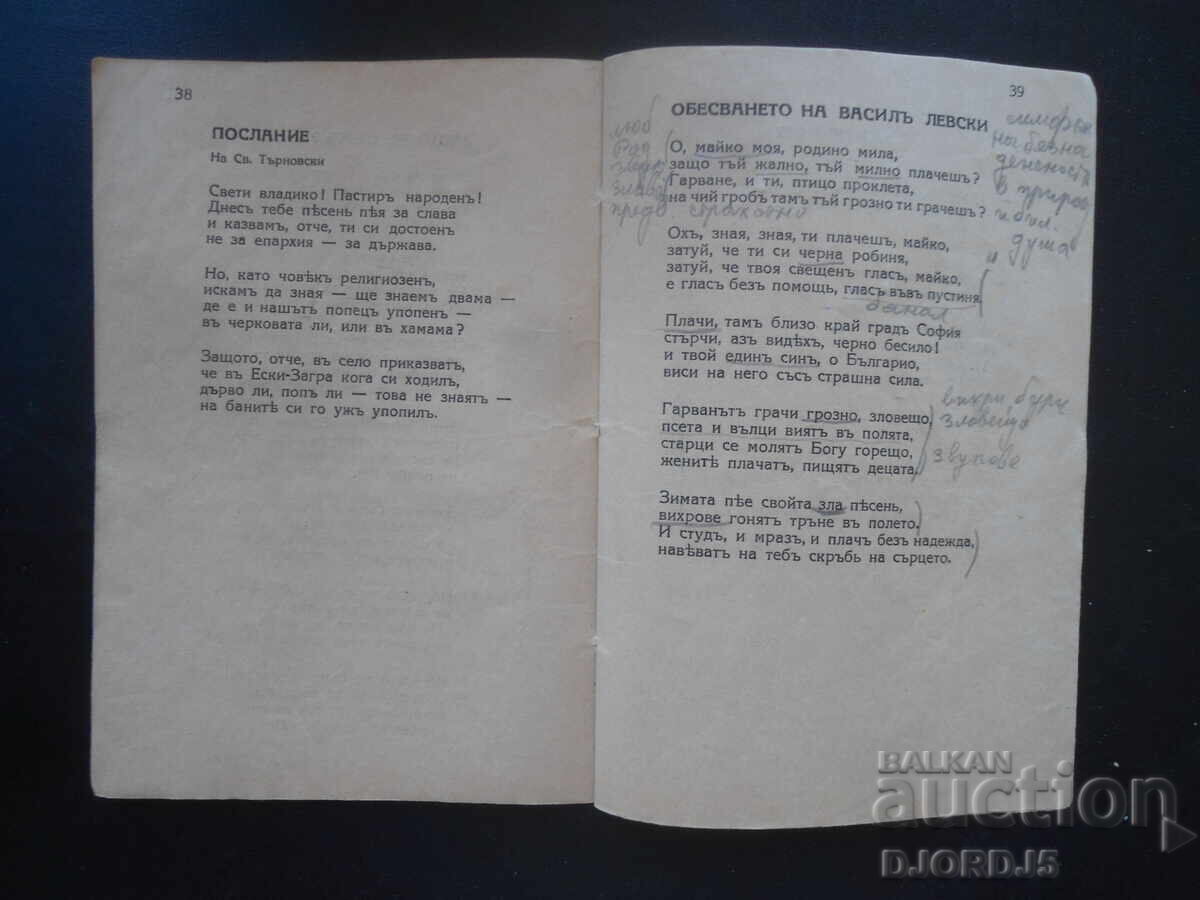 38
ПОСЛАНИЕ
На Св. Търновски
Свети владико! Пастиръ народенъ!
Днесъ тебе пѣсень пѣя за слава
и казвамъ, отче, ти си достоенъ
не за епархия — за държава.
Но, като човѣкъ религиозенъ,
искамъ да зная — ще знаемъ двама —
де е и нашътъ попецъ упопенъ —
въ черковата ли, или въ хамама?
Защото, отче, въ село приказватъ,
че въ Ески-Загра кога си ходилъ,
дърво ли, попъ ли — това не знаятъ —
на банитѣ си го ужъ упопилъ.
39
ОБЕСВАНЕТО НА ВАСИЛЪ ЛЕВСКИ
О, майко моя, родино мила,
защо тъй жално, тъй милно плачешъ?
Гарване, и ти, птицо проклета,
на чий гробъ тамъ тъй грозно ти грачешъ?
страхотно
Охъ, зная, зная, ти плачешъ, майко,
затуй, че ти си черна робиня,
затуй, че твоя свещенъ гласъ, майко,
е гласъ безъ помощь, гласъ въвъ пустиня.
Плачи, тамъ близо край градъ София
стърчи, азъ видѣхъ, черно бесило!
и твой единъ синъ, о Българио,
виси на него съсъ страшна сила.
Гарванътъ грачи грозно, зловещо,
псета и вълци виятъ въ полята,
старци се молятъ Богу горещо,
женитѣ плачатъ, пищятъ децата.
Зимата пѣе свойта зла пѣсень,
вихрове гонятъ тръне въ полето.
И студъ, и мразъ, и плачъ безъ надежда,
навѣватъ на тебъ скръбь на сърцето.
в природ
и бъл.
душа
зловещи
звукове
BALKAN
auction
DJORDJ5